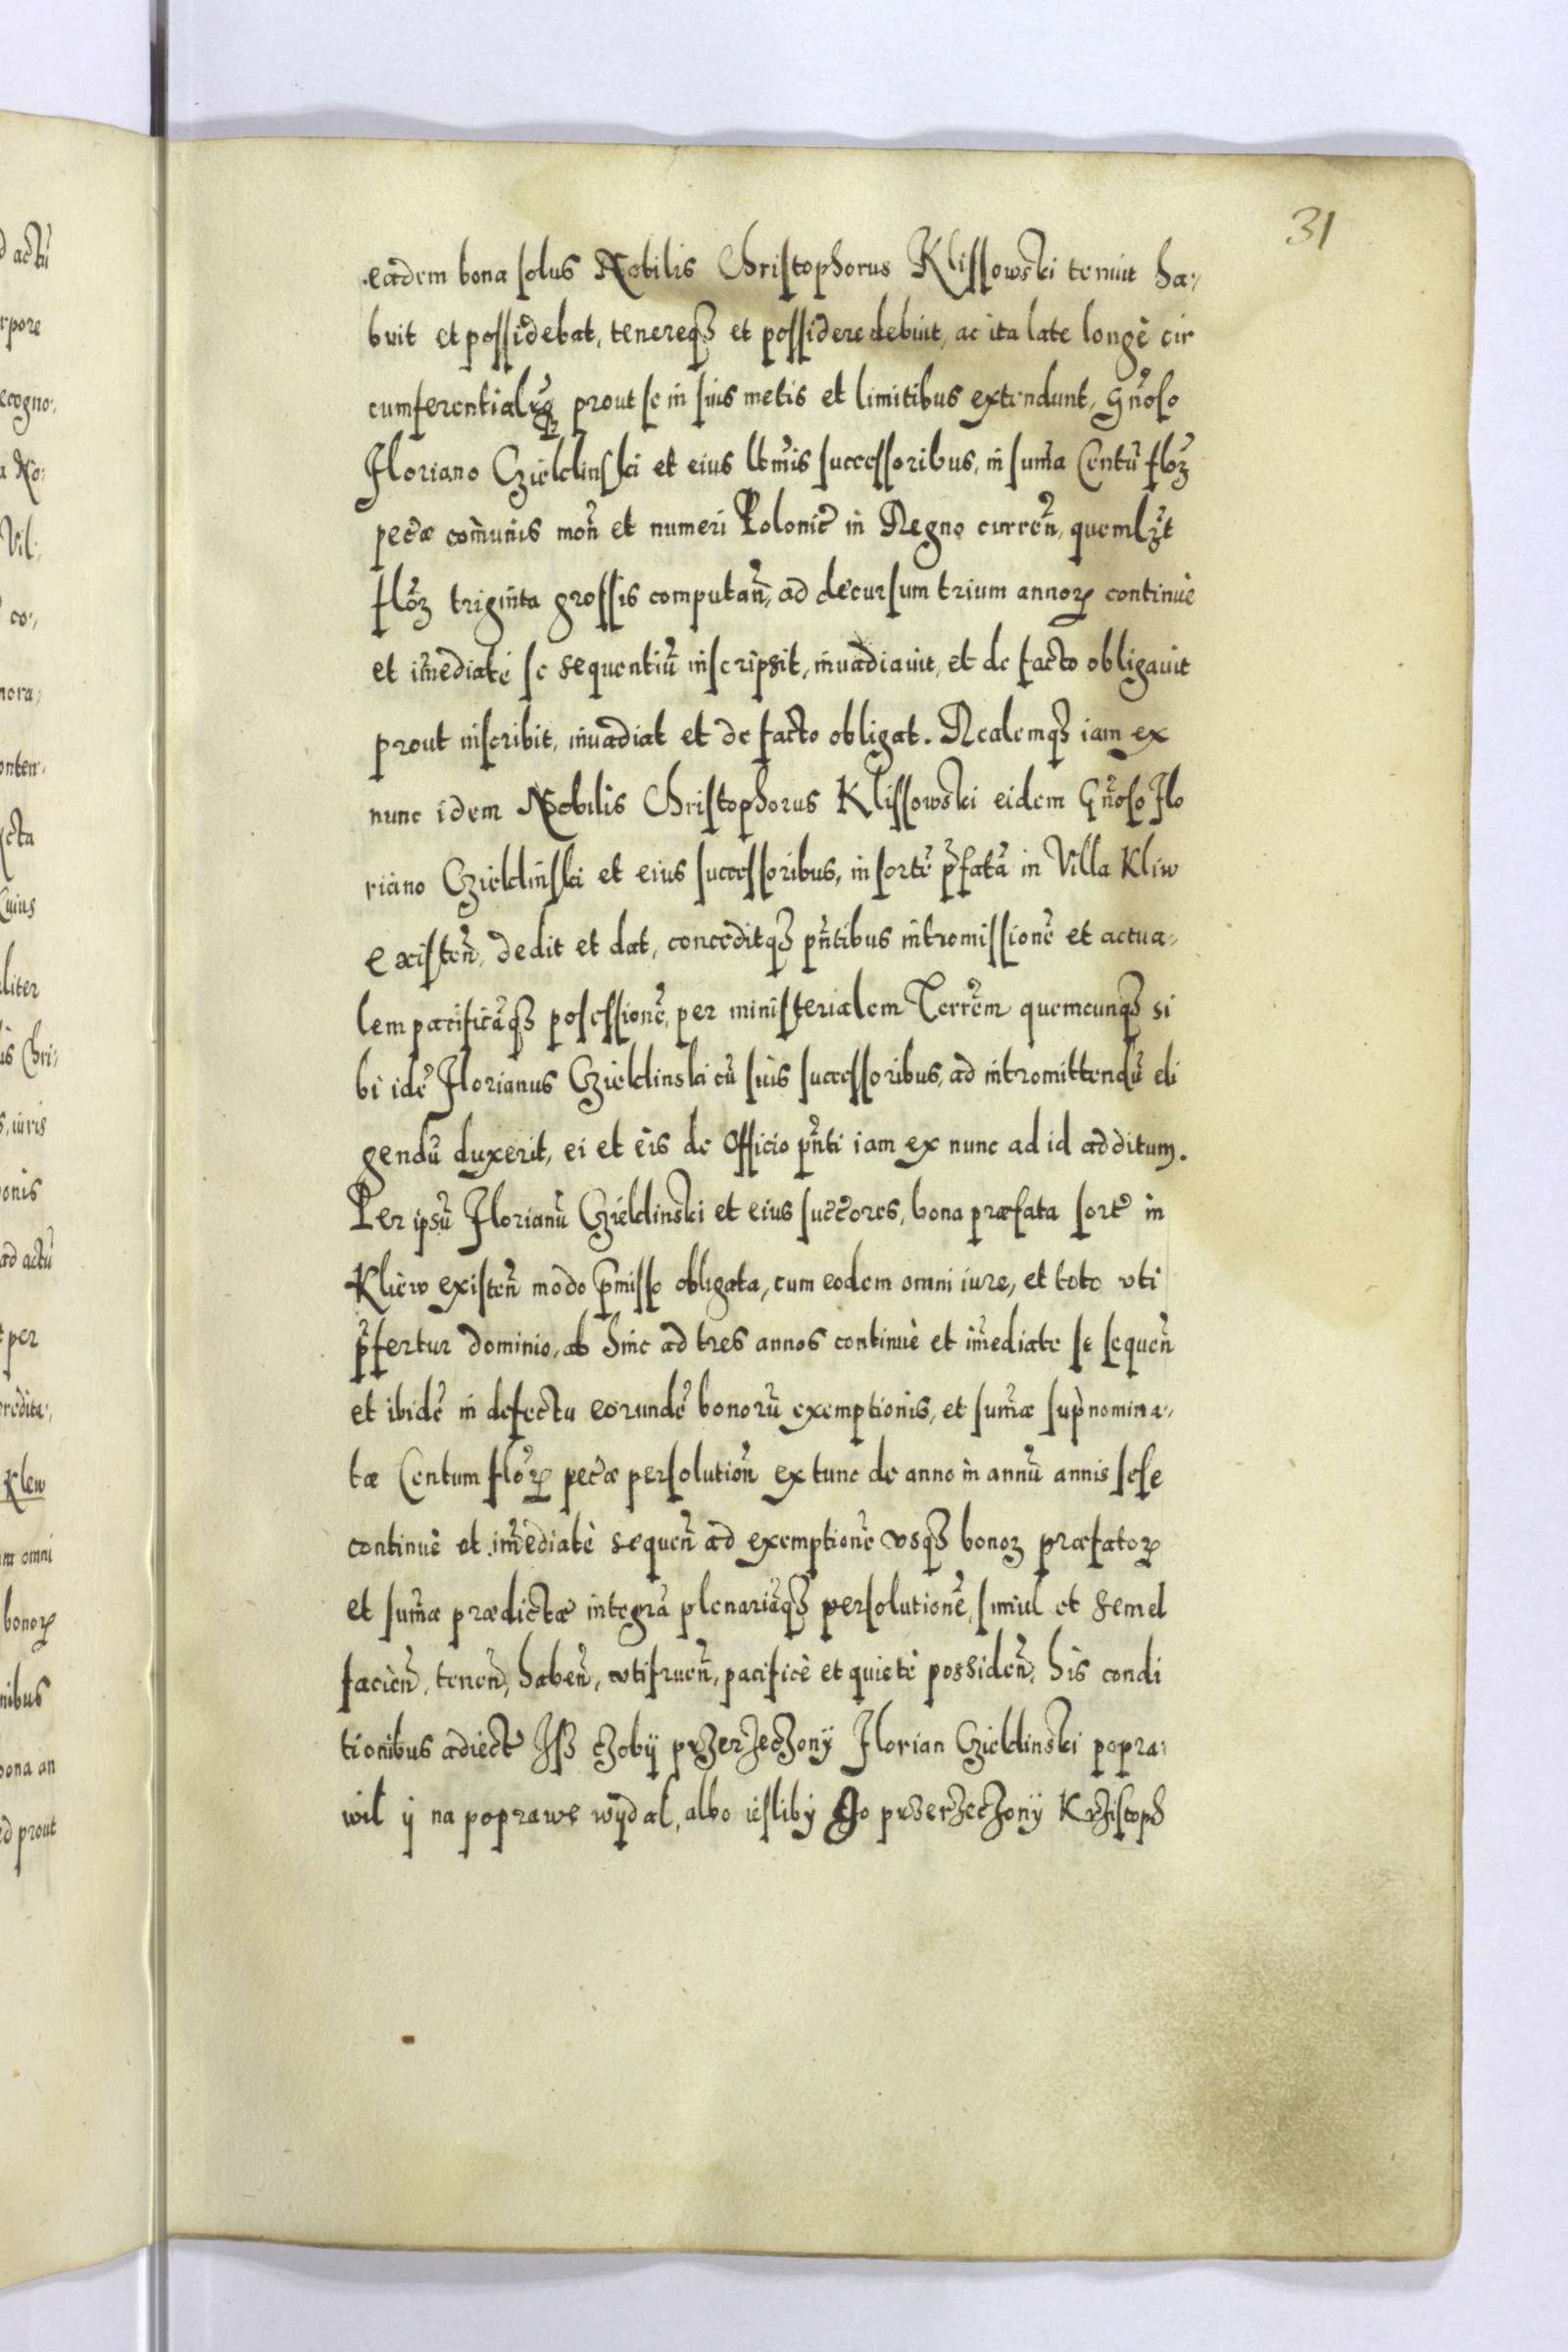 31
eadem bona solus Nobilis Christophorus Klissowski tenuit ha-
buit et possidebat, tenereqꝫ et possidere debuit, ac ita late longè cir
cumferentialr̃qꝫ prout se in suis metis et limitibus extendunt, Gñoso
Floriano Czieldinski et eius ltmis successoribus, in sum̃a Centũ floꝫ
pec̃æ com̃unis moñ et numeri Polonic̃ in Regno curreñ, quemlꝫt
floꝫ triginta grossis computañ, ad decursum trium annoꝝ continuè
et im̃ediatè se sequentiũ inscripsit, inuadiauit, et de facto obligauit
prout inscribit, inuadiat et de facto obligat. Realemqꝫ iam ex
nunc idem Nobilis Christophorus Klissowski eidem Gñoso Flo
riano Czieldinski et eius successoribus, in sortẽ p̃fatã in Villa Kliw
existeñ, dedit et dat, conceditqꝫ pñtibus intromissionẽ et actua-
lem pacificãqꝫ posessionẽ, per ministerialem Terrẽm quemcunqꝫ si
bi idẽ Florianus Czieldinski cũ suis successoribus, ad intromittendũ eli
gendũ duxerit, ei et eis de Officio pñti iam ex nunc ad id additum.
Per ipsũ Florianũ Czieldinski et eius succ̃ores, bona præfata sort̃ in
Kliew existeñ modo p̃misso obligata, cum eodem omni iure, et toto vti
p̃fertur dominio, ab hinc ad tres annos continuè et im̃ediate se sequeñ
et ibidẽ in defectu eorundẽ bonorũ exemptionis, et sum̃æ sup̃nomina-
tæ Centum floꝝ pec̃æ persolutioñ ex tunc de anno in annũ annis sese
continuè et im̃ediatè sequeñ ad exemptionẽ vsqꝫ bonoꝝ præfatoꝝ
et sum̃æ prædictæ integrã plenariãqꝫ persolutionẽ, simul et semel
facieñ, teneñ, habeñ, vtifrueñ, pacificè et quietè possideñ, his condi
tionibus adiect̃ Isz czobÿ przerzeczonÿ Florian Czieldinski popra-
wil ÿ na poprawe wÿdal, albo iesliby Go przerzeczonÿ Krzistoph